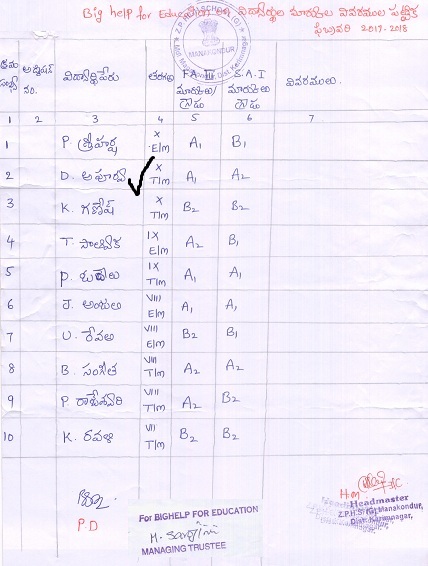 Big help for Education వారి విద్యార్థుల మార్కుల వివరముల పట్టిక
ఫిబ్రవరి 2017-2018
Z.P.H. SCHOOL (G)
MANAKONDUR
క్రమ సంఖ్య అడ్మిషన్ నం. విద్యార్థి పేరు తరగతి F.A III మార్కులు/గ్రేడు S.A.I మార్కులు గ్రేడు వివరములు.
1 2 3 4 5 6 7
1 P. శ్రీహర్ష X E/m A1 B1
2 D. అపూర్వ X T/m A1 A2
3 K. గణేష్ X T/m B2 B2
4 T. సాత్విక IX E/m A2 B1
5 P. IX T/m A1 A1
6 J. అంజలి VIII E/m A1 A1
7 U. రేవతి VIII E/m B2 B1
8 B. సంగీత VIII T/m A2 A2
9 P. రాజేశ్వరి VII T/m A2 B2
10 K. రవళి VI T/m B2 B2
P.D
For BIGHELP FOR EDUCATION
MANAGING TRUSTEE
H.m
Headmaster
Z.P.H.S (G) Manakondur,
Dist: Karimnagar,